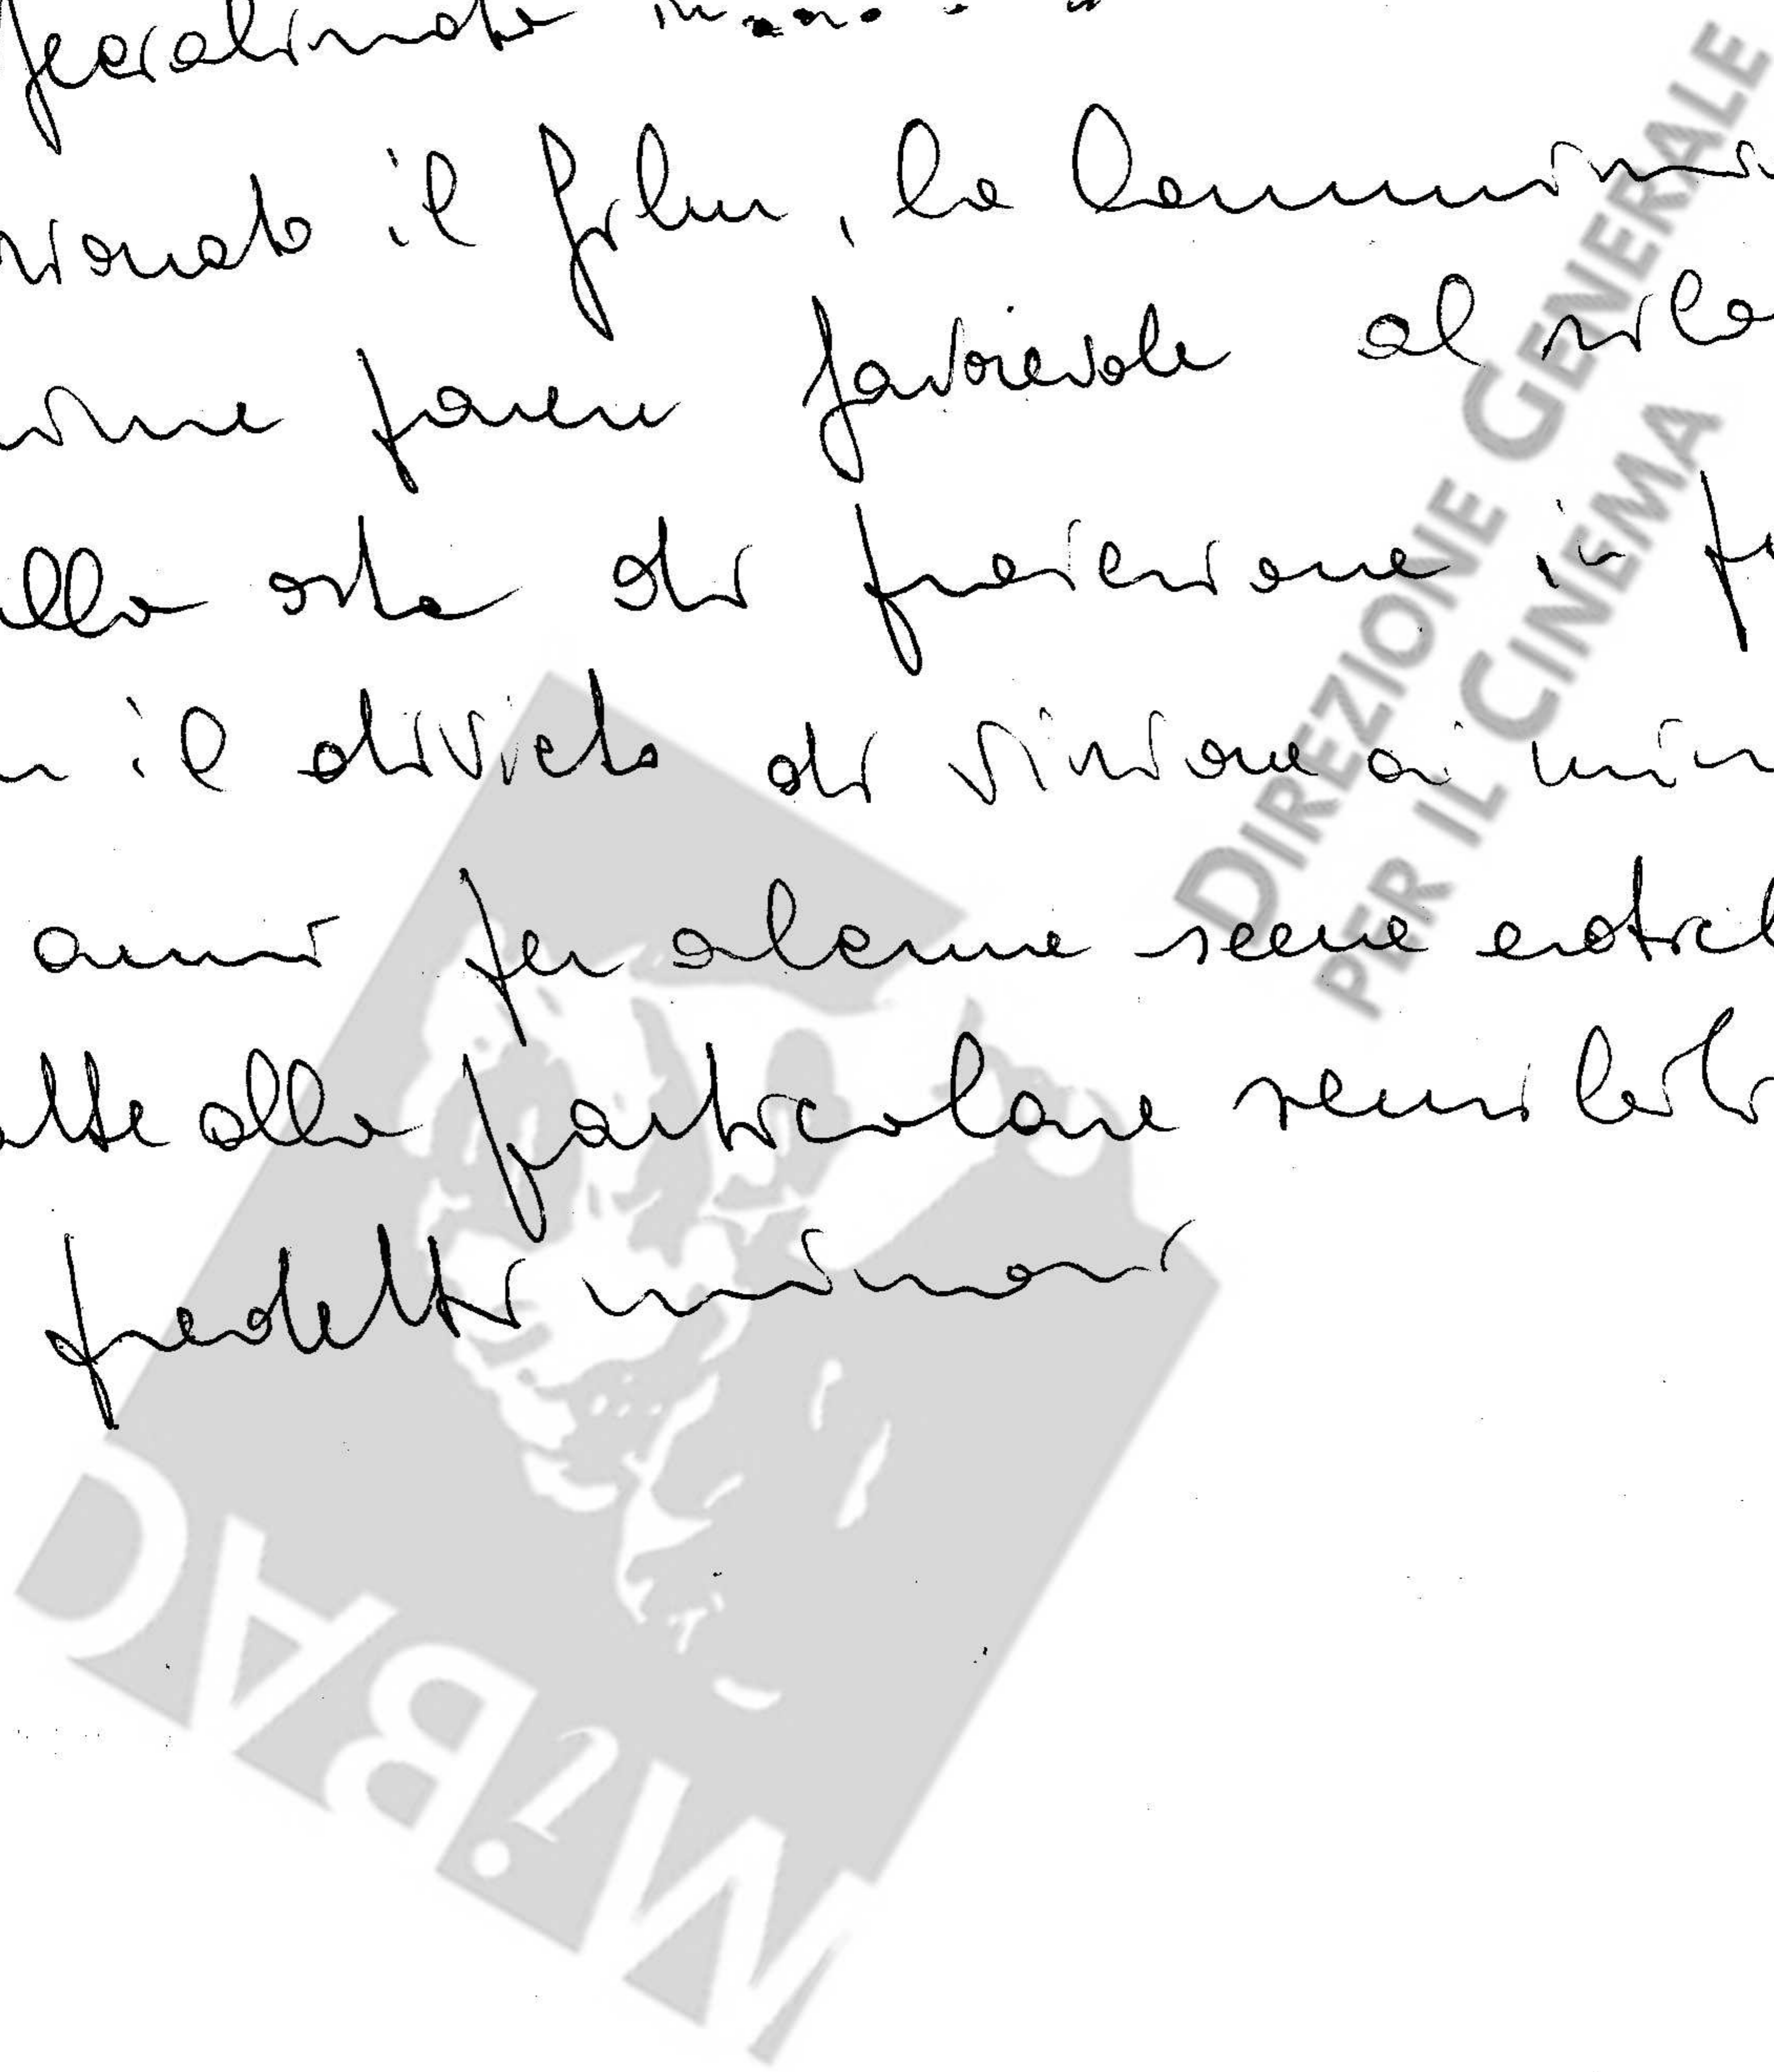 sionato il film, la Commissi
esprime parere favorevole al rila
nulla osta di proiezione in p
n il divieto di visione ai min
anni per alcune scene erotich
atte alla particolare sensibilit
predetti minori
DIREZIONE GENERALE
PER IL CINEMA
MiBAC